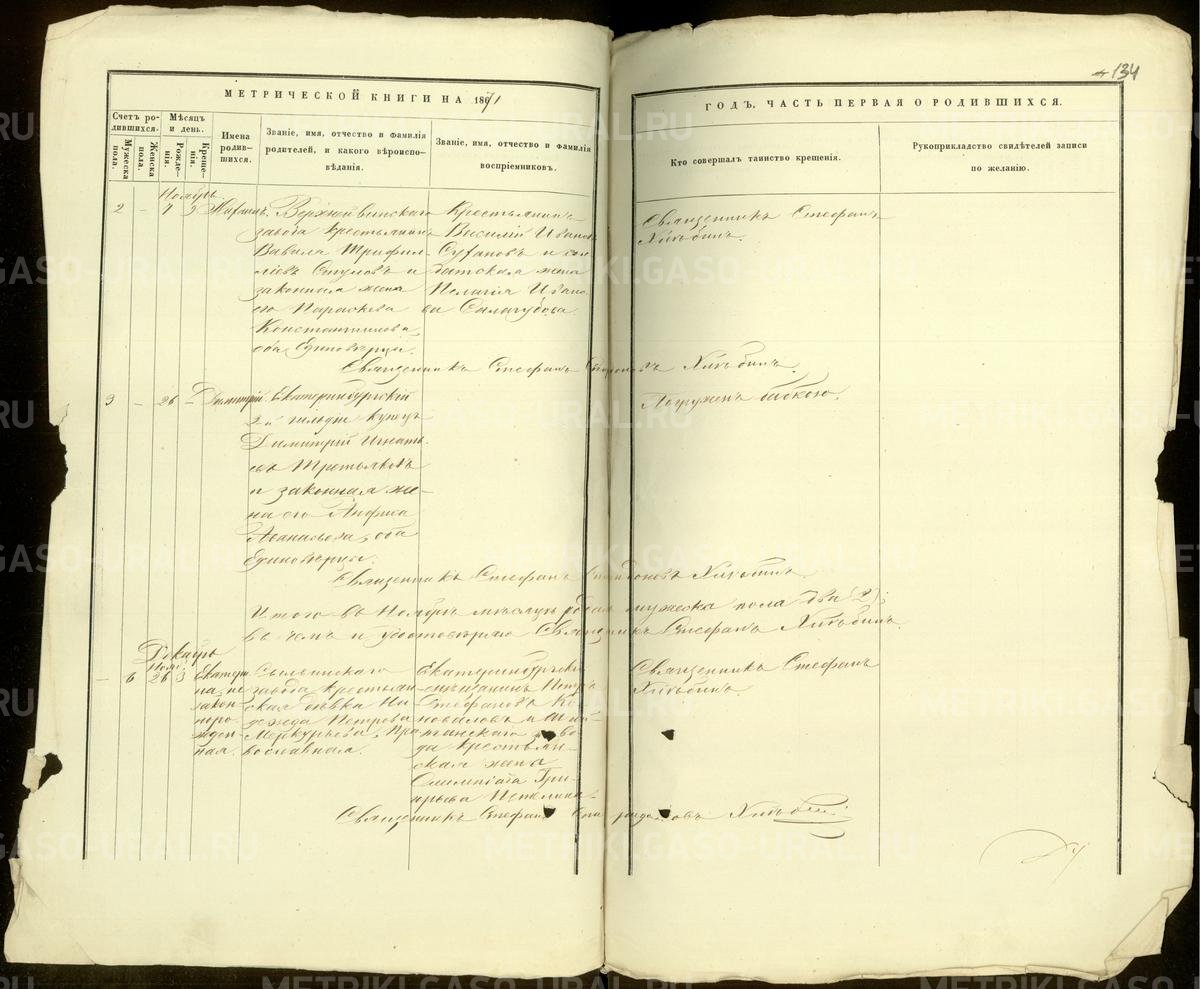 134
МЕТРИЧЕСКОЙ КНИГИ НА 1871
ГОДЪ, ЧАСТЬ ПЕРВАЯ О РОДИВШИХСЯ.
Счетъ ро-
дившихся.
Мужеска
пола.
Женска
пола.
Мѣсяцъ
и день.
Рожде-
нія.
Креще-
нія.
Имена
родив-
шихся.
Званіе, имя, отчество и фамилія
родителей, и какого вѣроиспо-
вѣданія.
Званіе, имя, отчество и фамилія
воспріемниковъ.
Кто совершалъ таинство крещенія.
Рукоприкладство свидѣтелей записи
по желанію.
Ноябрь
2 – 7 9
завода крестьянинъ
Вавила Трифил-
и
законная жена
его Параскева
Константинова,
оба Единовѣрцы.
Крестьянинъ
Василій Иванов
и
жена
Пелагія Ивано-
ва
Священникъ Стефанъ
Хлѣбинъ.
Священникъ Стефанъ Хлѣбинъ.
3 – 26 – Димитрій
Екатеринбургскій
2й гильдіи купецъ
Димитрій Игнать-
евъ Третьяковъ
и законная же-
на его Анфиса
Аѳанасьева, оба
Единовѣрцы.
Погруженъ бабкою.
Священникъ Стефанъ Спиридоновъ Хлѣбинъ
Итого въ Ноябрѣ мѣсяцѣ мужеска пола два (2);
въ чемъ и удостовѣряю Священникъ Стефанъ Хлѣбинъ.
Декабрь
Нояб.
– 6 26 3
Екатери-
на, не
закон-
но
рожден-
ная.
завода крестьян-
ская дѣвка На-
дежда Петрова
Меркурьева, пра-
вославная.
Екатеринбургскій
мѣщанинъ Петръ
Стефановъ Ко-
новаловъ и
заво-
да крестьян-
ская жена
Олимпіада Гри-
горьева
Священникъ Стефанъ
Хлѣбинъ.
Священникъ Стефанъ Спиридоновъ Хлѣбинъ
METRIKI.GASO-URAL.RU